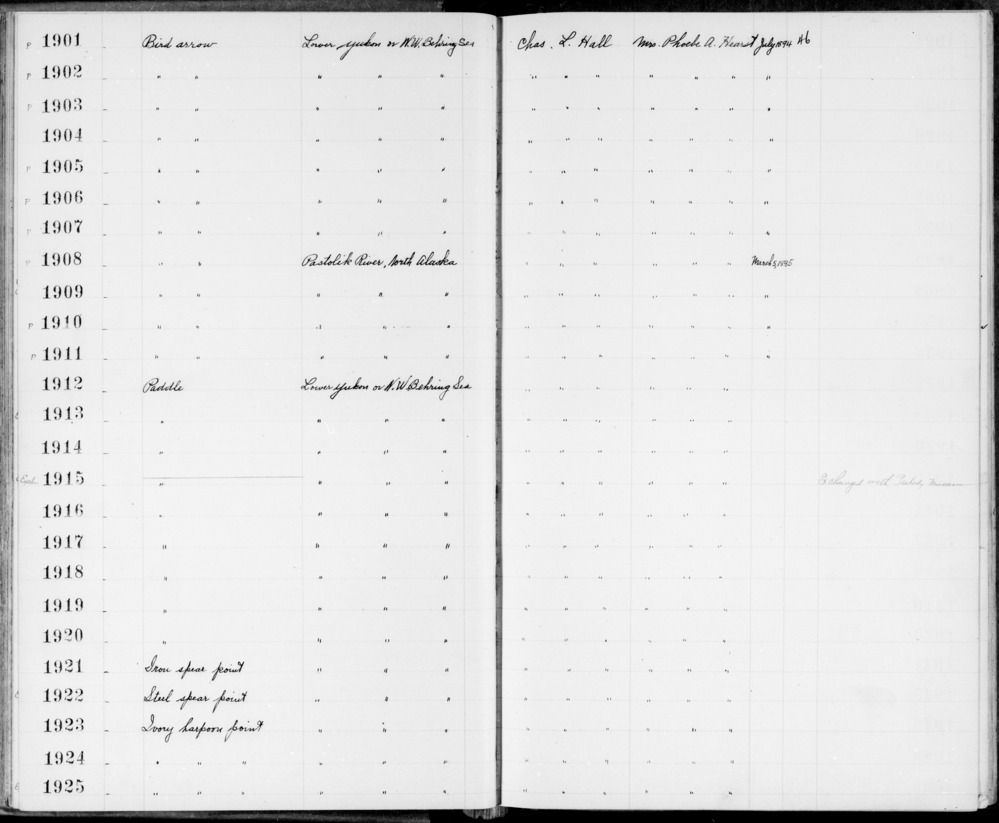 P 1901 Bird arrow Lower Yukon or N.W. Behring Sea Chas. L. Hall Mrs. Phoebe A. Hearst July 1894 46
P 1902 " " " " " " " " " " " "
P 1903 " " " " " " " " " " " "
1904 " " " " " " " " " " " "
P 1905 " " " " " " " " " " " "
P 1906 " " " " " " " " " " " "
P 1907 " " " " " " " " " " " "
P 1908 " " Pastolik River, North Alaska " " " " " " March 5, 1895
1909 " " " " " " " " " " " "
P 1910 " " " " " " " " " " " "
P 1911 " " " " " " " " " " " "
1912 Paddle Lower Yukon or N.W. Behring Sea " " " " " "
1913 " " " " " " " " " "
1914 " " " " " " " " " "
1915 " " " " " " " " " " Exchanged with Museum
1916 " " " " " " " " " "
1917 " " " " " " " " " "
1918 " " " " " " " " " "
1919 " " " " " " " " " "
1920 " " " " " " " " " "
1921 Iron spear point " " " " " " " " "
1922 Steel spear point " " " " " " " " "
1923 Ivory harpoon point " " " " " " " " "
1924 " " " " " " " " " " " "
1925 " " " " " " " " " " " "